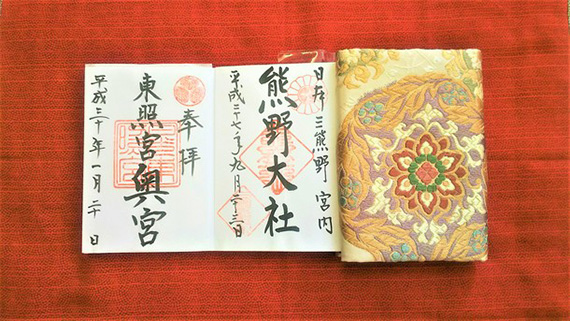 日本三熊野 宮内
熊野大社
平成二十七年九月二十三日
奉拝
東照宮奥宮
平成三十年一月二十日